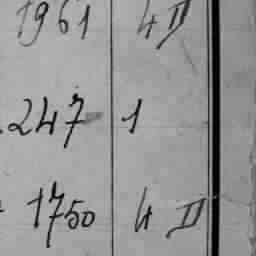 1961 4 II
.247 1
1750 4 II